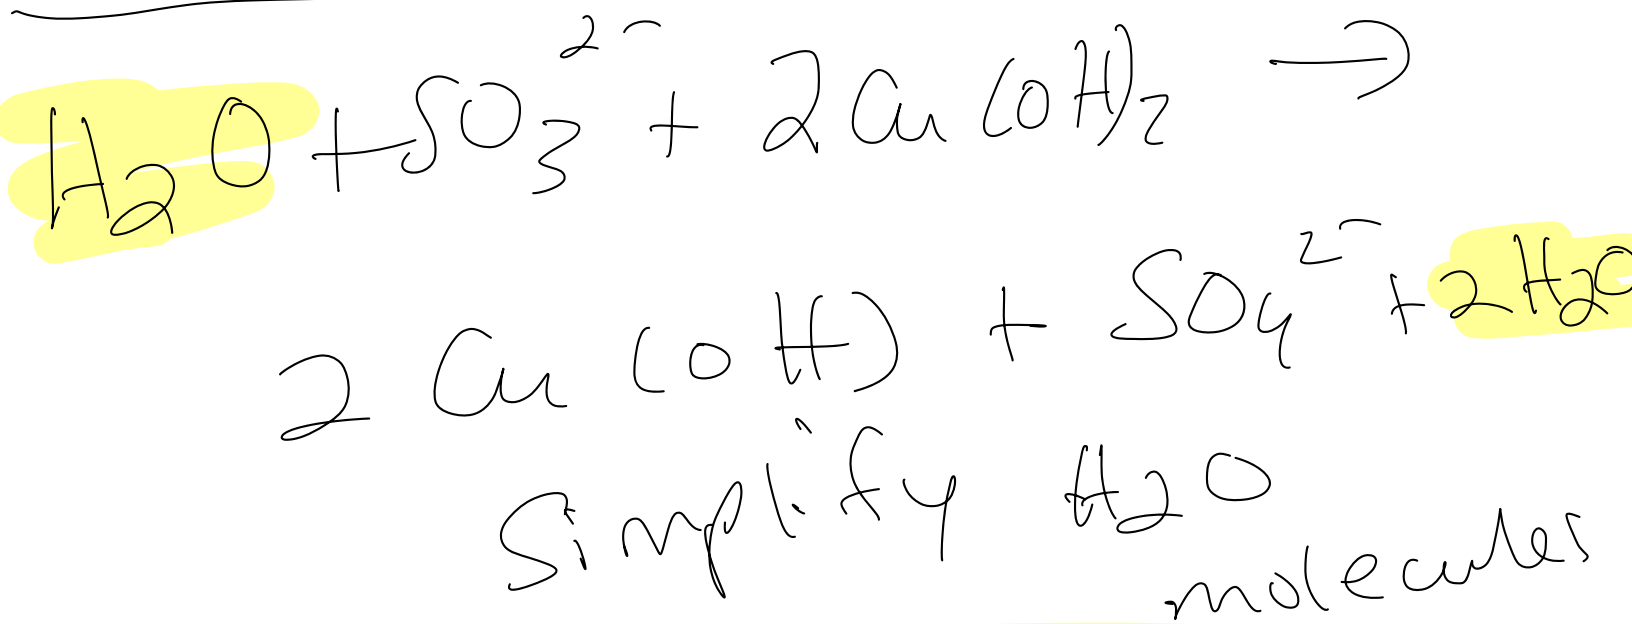 H₂O + SO₃²⁻ + 2Cu(OH)₂ →
2Cu(OH) + SO₄²⁻ + 2H₂O
Simplify H₂O
molecules